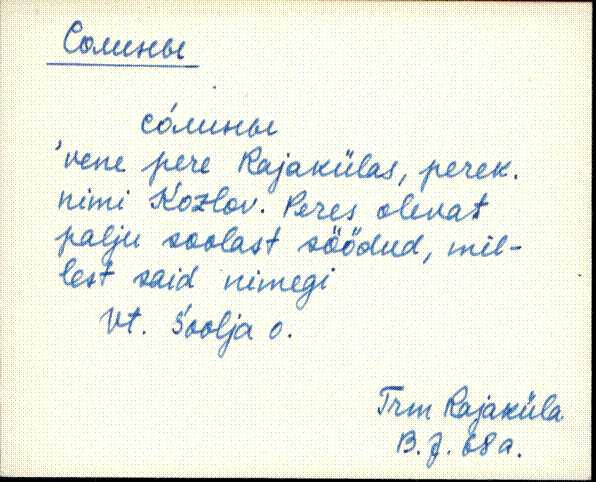 Солины
со́лины
'vene pere Rajakülas, perek.
nimi Kozlov. Peres olevat
palju soolast söödud, mil-
lest said nimegi
Vt. Soolja o.
Trm Rajaküla
B. J. 68 a.